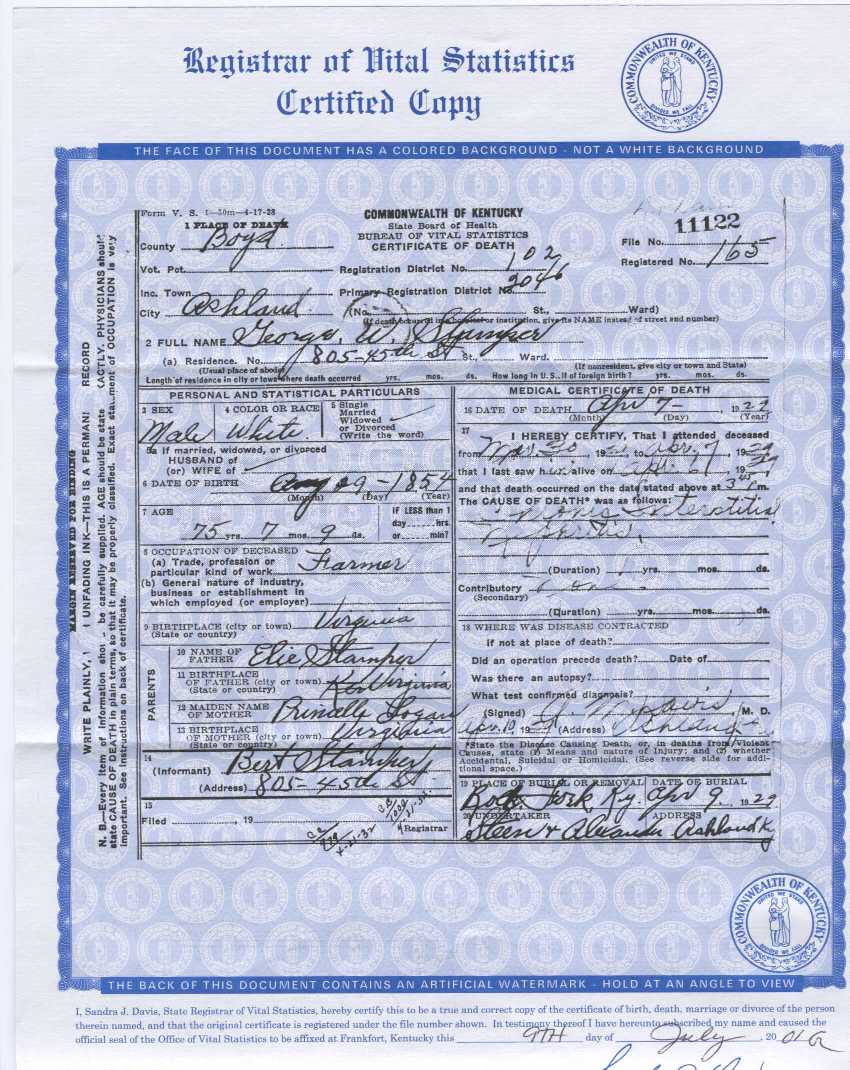 Registrar of Vital Statistics
Certified Copy
COMMONWEALTH OF KENTUCKY
UNITED WE STAND
DIVIDED WE FALL
THE FACE OF THIS DOCUMENT HAS A COLORED BACKGROUND - NOT A WHITE BACKGROUND
Form V. S. 1—50m—4-17-28
1 PLACE OF DEATH
County Boyd
Vot. Pct.
Inc. Town
City Ashland
COMMONWEALTH OF KENTUCKY
State Board of Health
BUREAU OF VITAL STATISTICS
CERTIFICATE OF DEATH
Registration District No. 102
Primary Registration District No. 2046
(No. St., Ward)
(If death occurred in a hospital or institution, give its NAME instead of street and number)
11122
File No.
Registered No. 165
2 FULL NAME George W. Stamper
(a) Residence. No. 805-45th St St., Ward.
(Usual place of abode) (If nonresident, give city or town and State)
Length of residence in city or town where death occurred yrs. mos. ds. How long in U. S., if of foreign birth? yrs. mos. ds.
PERSONAL AND STATISTICAL PARTICULARS
3 SEX Male
4 COLOR OR RACE White
5 Single
Married
Widowed
or Divorced
(Write the word)
5a If married, widowed, or divorced
HUSBAND of
(or) WIFE of
6 DATE OF BIRTH 29-1854
(Month) (Day) (Year)
7 AGE
75 yrs. 7 mos. 9 ds.
IF LESS than 1
day hrs.
or min?
8 OCCUPATION OF DECEASED
(a) Trade, profession or
particular kind of work Farmer
(b) General nature of industry,
business or establishment in
which employed (or employer)
9 BIRTHPLACE (city or town) Virginia
(State or country)
PARENTS
10 NAME OF
FATHER Elie Stamper
11 BIRTHPLACE
OF FATHER (city or town) Virginia
(State or country)
12 MAIDEN NAME
OF MOTHER Logan
13 BIRTHPLACE
OF MOTHER (city or town) Virginia
(State or country)
14
(Informant) Bert Stamper
(Address) 805-45th St.
15
Filed , 19
Registrar
MEDICAL CERTIFICATE OF DEATH
16 DATE OF DEATH Apr 7- , 1929
(Month) (Day) (Year)
17
I HEREBY CERTIFY, That I attended deceased
from Mar 30, 19 to Apr 7, 1929
that I last saw him alive on Apr 1929
and that death occurred on the date stated above at 3 m.
The CAUSE OF DEATH* was as follows:
Interstitial
(Duration) yrs. mos. ds.
Contributory
(Secondary)
(Duration) yrs. mos. ds.
18 WHERE WAS DISEASE CONTRACTED
if not at place of death?
Did an operation precede death? Date of
Was there an autopsy?
What test confirmed diagnosis?
(Signed) Davis M. D.
Apr. 10, 19 (Address) Ashland
*State the Disease Causing Death, or, in deaths from Violent
Causes, state (1) Means and nature of Injury; and (2) whether
Accidental, Suicidal or Homicidal. (See reverse side for addi-
tional space.)
19 PLACE OF BURIAL OR REMOVAL DATE OF BURIAL
Fork, Ky. Apr 9, 1929
20 UNDERTAKER ADDRESS
Steen & Alexander Ashland Ky
MARGIN RESERVED FOR BINDING
WRITE PLAINLY, UNFADING INK—THIS IS A PERMAN RECORD
N. B.—Every item of information shou be carefully supplied. AGE should be state XACTLY. PHYSICIANS should
state CAUSE OF DEATH in plain terms, so that it may be properly classified. Exact statement of OCCUPATION is very
important. See instructions on back of certificate.
COMMONWEALTH OF KENTUCKY
UNITED WE STAND
DIVIDED WE FALL
THE BACK OF THIS DOCUMENT CONTAINS AN ARTIFICIAL WATERMARK - HOLD AT AN ANGLE TO VIEW
I, Sandra J. Davis, State Registrar of Vital Statistics, hereby certify this to be a true and correct copy of the certificate of birth, death, marriage or divorce of the person
therein named, and that the original certificate is registered under the file number shown. In testimony thereof I have hereunto subscribed my name and caused the
official seal of the Office of Vital Statistics to be affixed at Frankfort, Kentucky this 9TH day of July, 2001